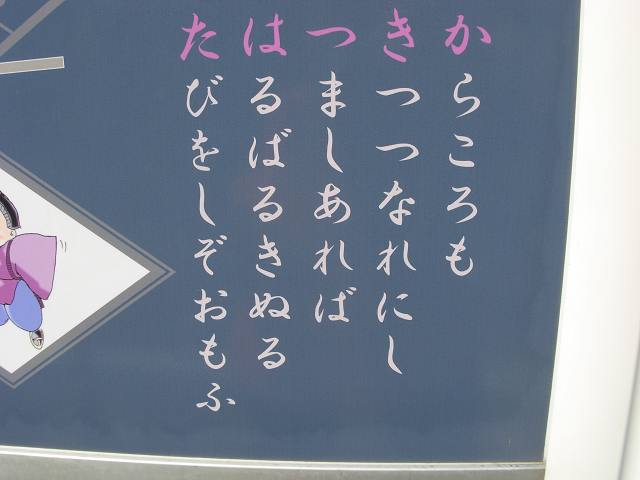 からころも
きつつなれにし
つましあれば
はるばるきぬる
たびをしぞおもふ